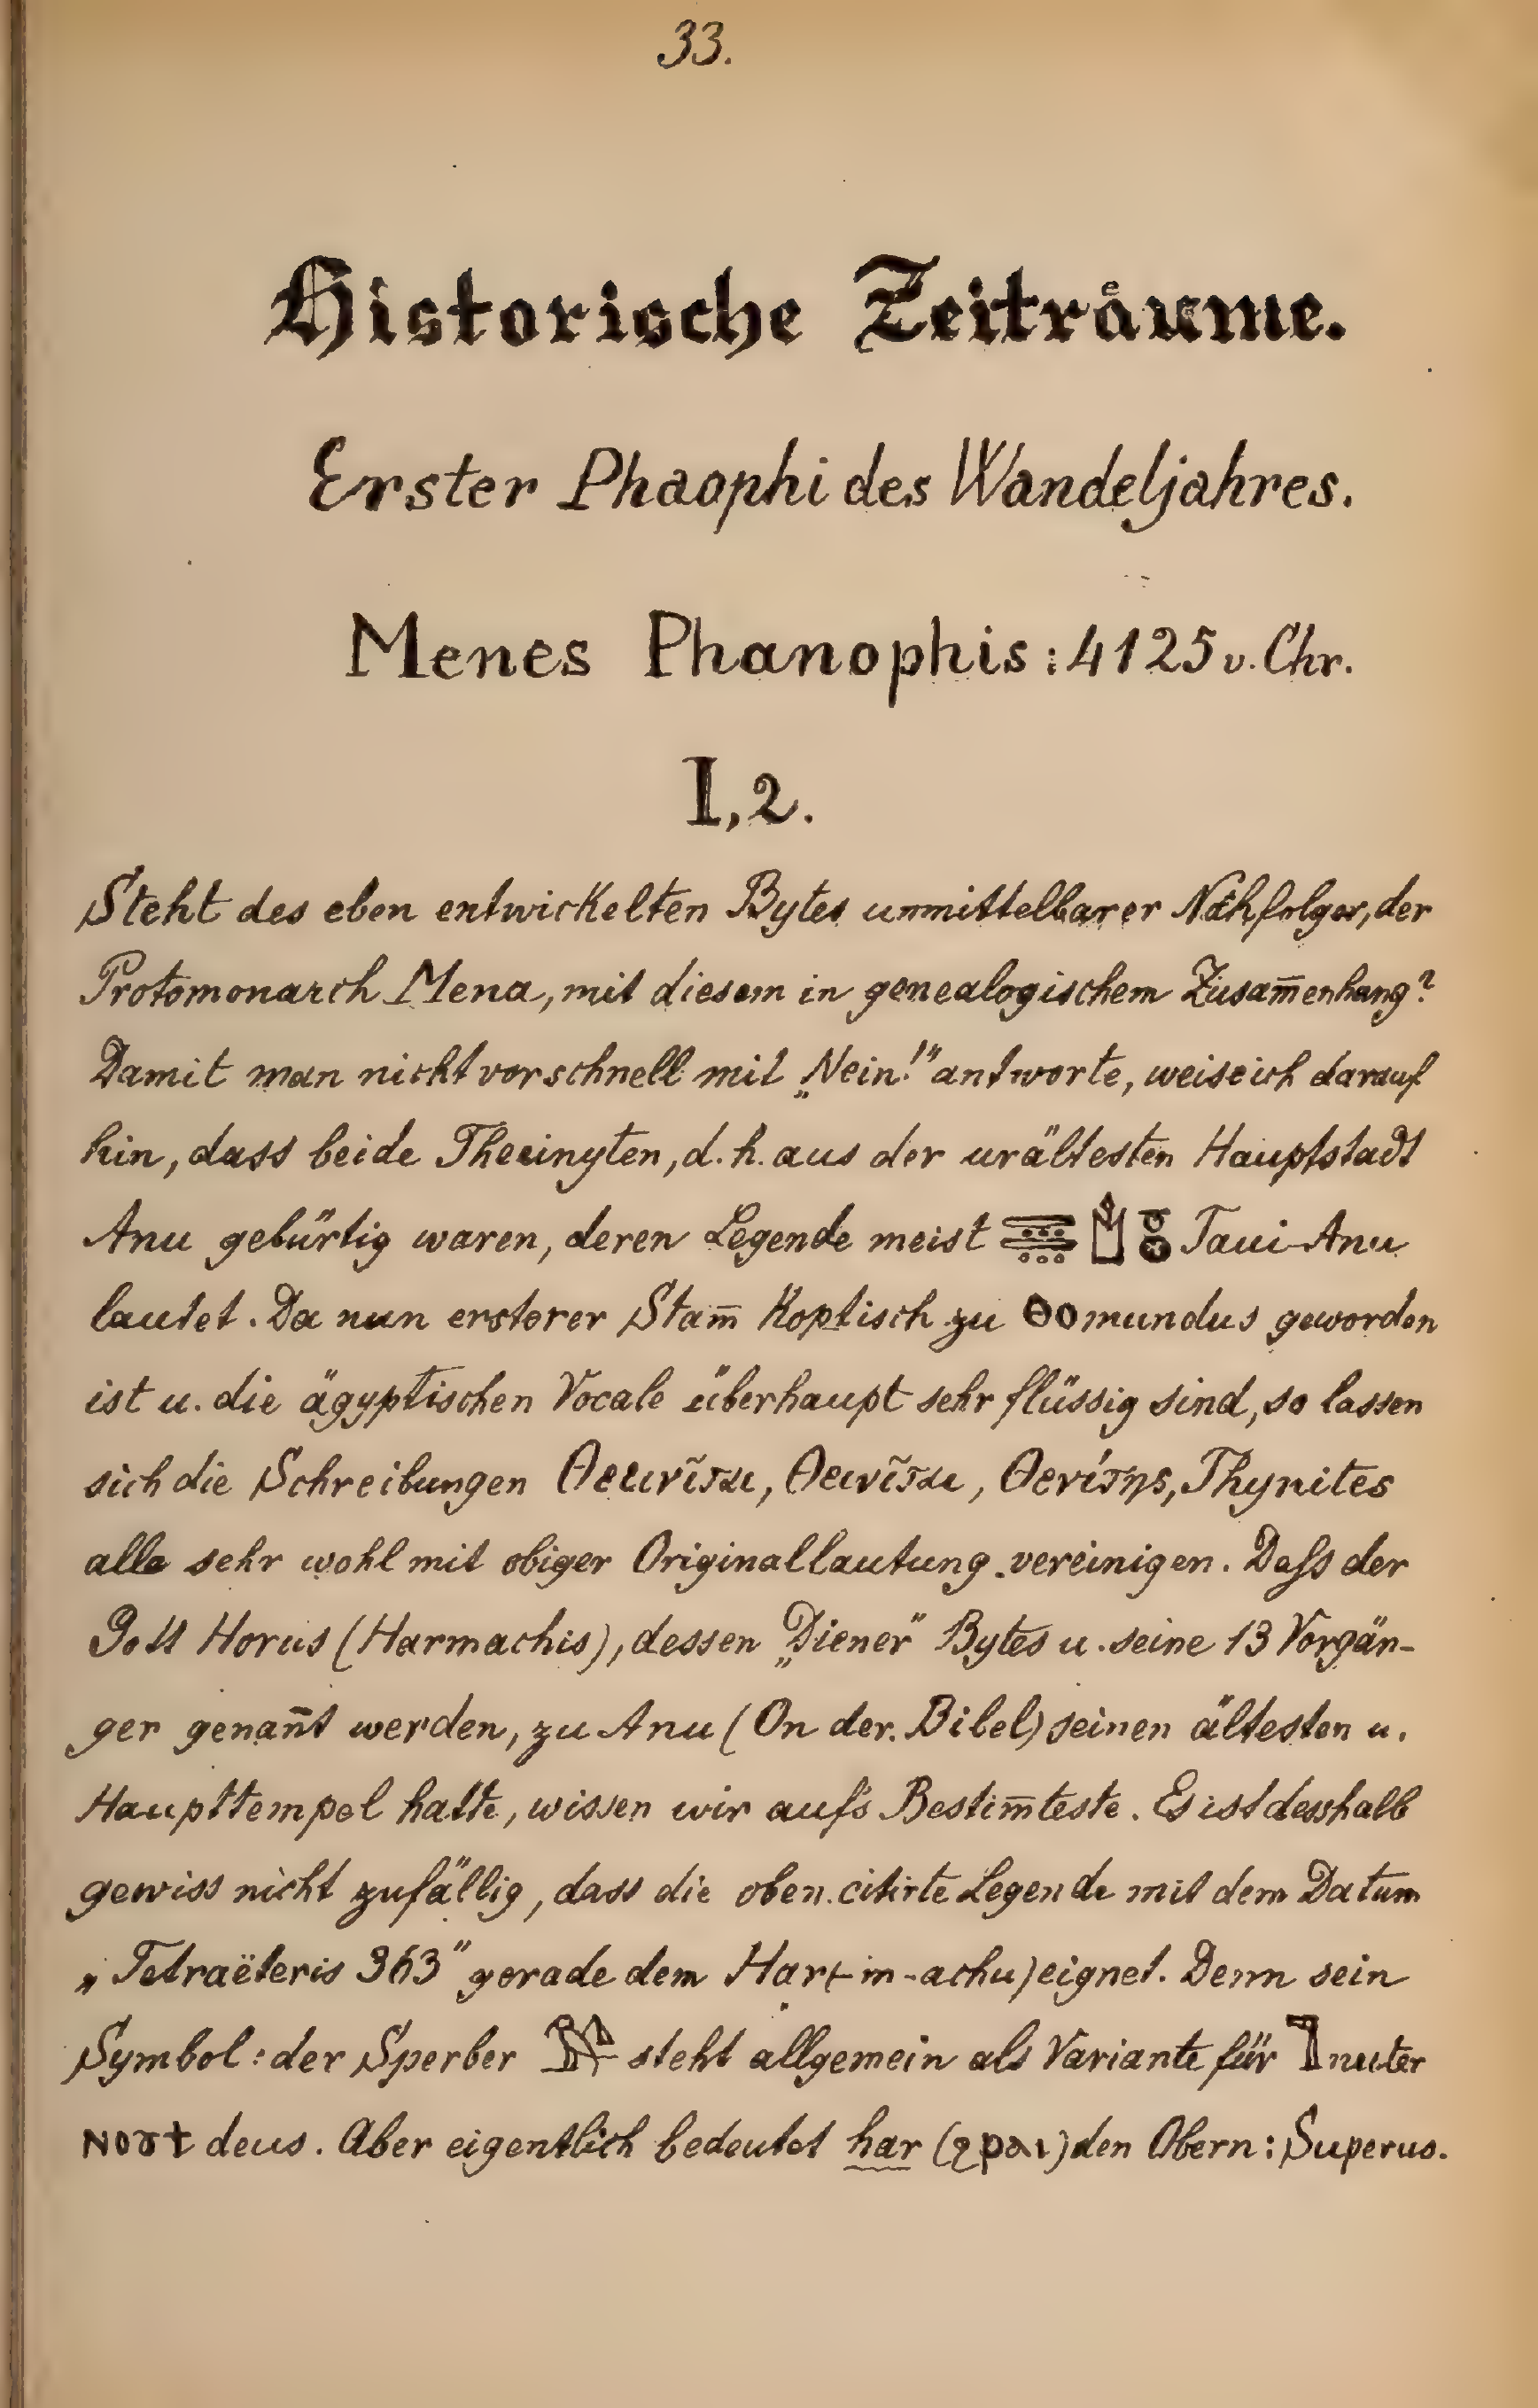 33.
Historische Zeiträume.
Erster Phaophi des Wandeljahres.
Menes Phanophis: 4125 v. Chr.
I, 2.
Steht des eben entwickelten Bytes unmittelbarer Nachfolger, der
Protomonarch Mena, mit diesem in genealogischem Zusam̅enhang?
Damit man nicht vorschnell mit „Nein!“ antworte, weise ich darauf
hin, dass beide Theeinyten, d. h. aus der urältesten Hauptstadt
Anu gebürtig waren, deren Legende meist Taui-Anu
lautet. Da nun ersterer Stam̅ Koptisch zu ⲑⲟ mundus geworden
ist u. die ägyptischen Vocale überhaupt sehr flüssig sind, so lassen
sich die Schreibungen Θεεινῖται, Θεινῖται, Θενίτης, Thynites
alle sehr wohl mit obiger Originallautung vereinigen. Daſs der
Gott Horus (Harmachis), dessen „Diener“ Bytes u. seine 13 Vorgän-
ger genan̅t werden, zu Anu (On der Bibel) seinen ältesten u.
Haupttempel hatte, wissen wir auf's Bestim̅teste. Es ist desshalb
gewiss nicht zufällig, dass die oben citirte Legende mit dem Datum
„Tetraëteris 363“ gerade dem Har(-m-achu) eignet. Denn sein
Symbol: der Sperber steht allgemein als Variante für nuter
ⲛⲟⲩϯ deus. Aber eigentlich bedeutet har (ϩⲣⲁⲓ) den Obern: Superus.